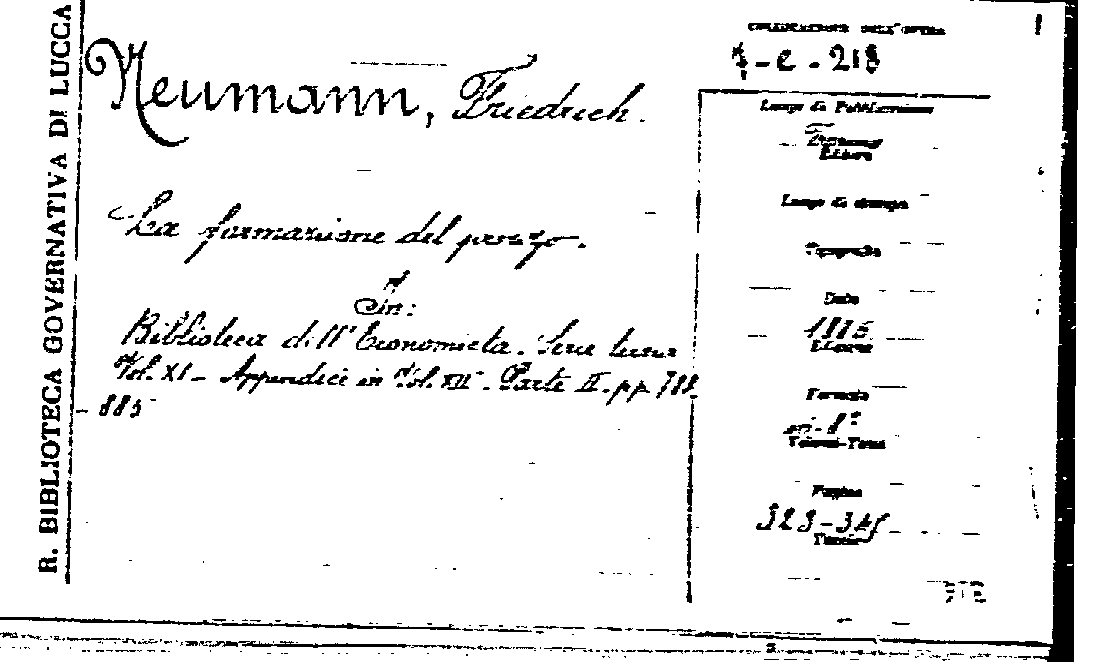 R. BIBLIOTECA GOVERNATIVA DI LUCCA
Neumann, Friedrich.
La formazione del prezzo.
In:
Biblioteca dell'Economista. Serie terza
Vol. XI - Appendice in Vol. XII - Parte II - pp. 788
- 885
COLLOCAZIONE DELL'OPERA
- c - 218
Luogo di Pubblicazione
Torino
Editore
Luogo di stampa
Tipografia
Data
Edizione
Formato
in-8°
Volumi-Tomi
Pagine
Tavole